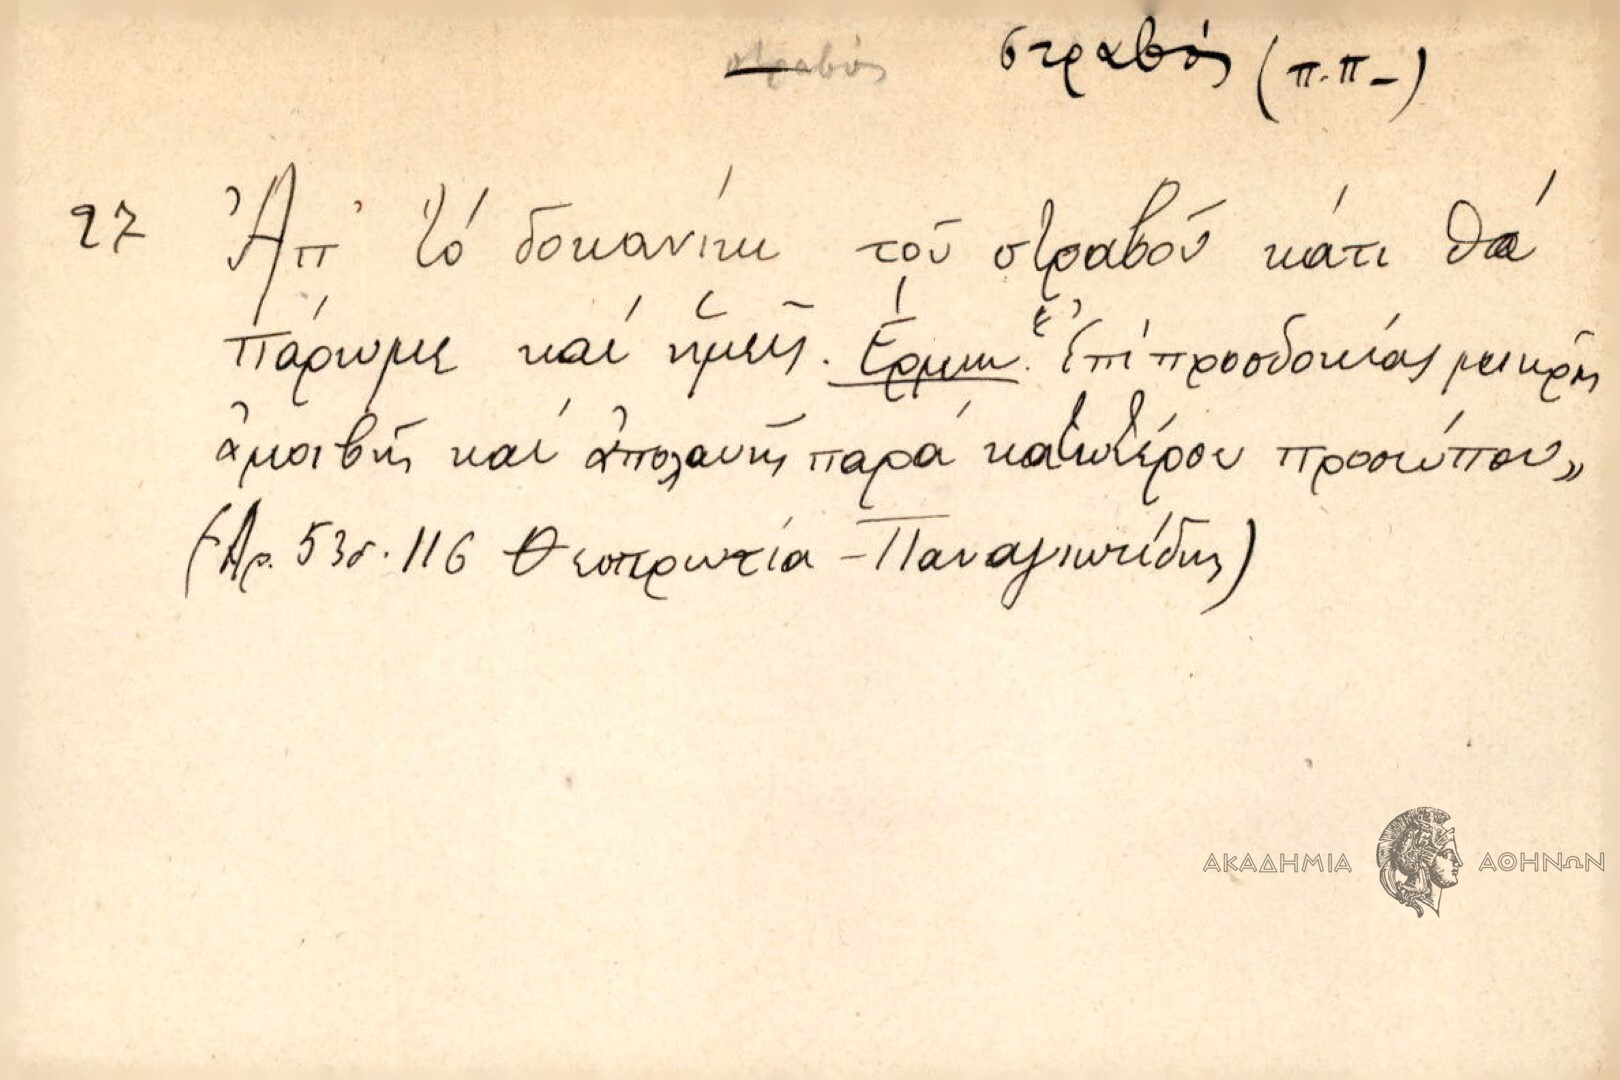 στραβός στραβός (π.π-)
27 Ἀπ' τό δοκανίκι τοῦ στραβοῦ κάτι θά
πάρωμε καί ἡμεῖς. Ἑρμην. «Ἐπί προσδοκίας μικρῆς
ἀμοιβῆς καί ἀπολαυῆς παρά κατωτέρου προσώπου»
(Ἀρ. 53 σ. 116 Θεσπρωτία - Παναγιωτίδης)
ΑΚΑΔΗΜΙΑ ΑΘΗΝΩΝ